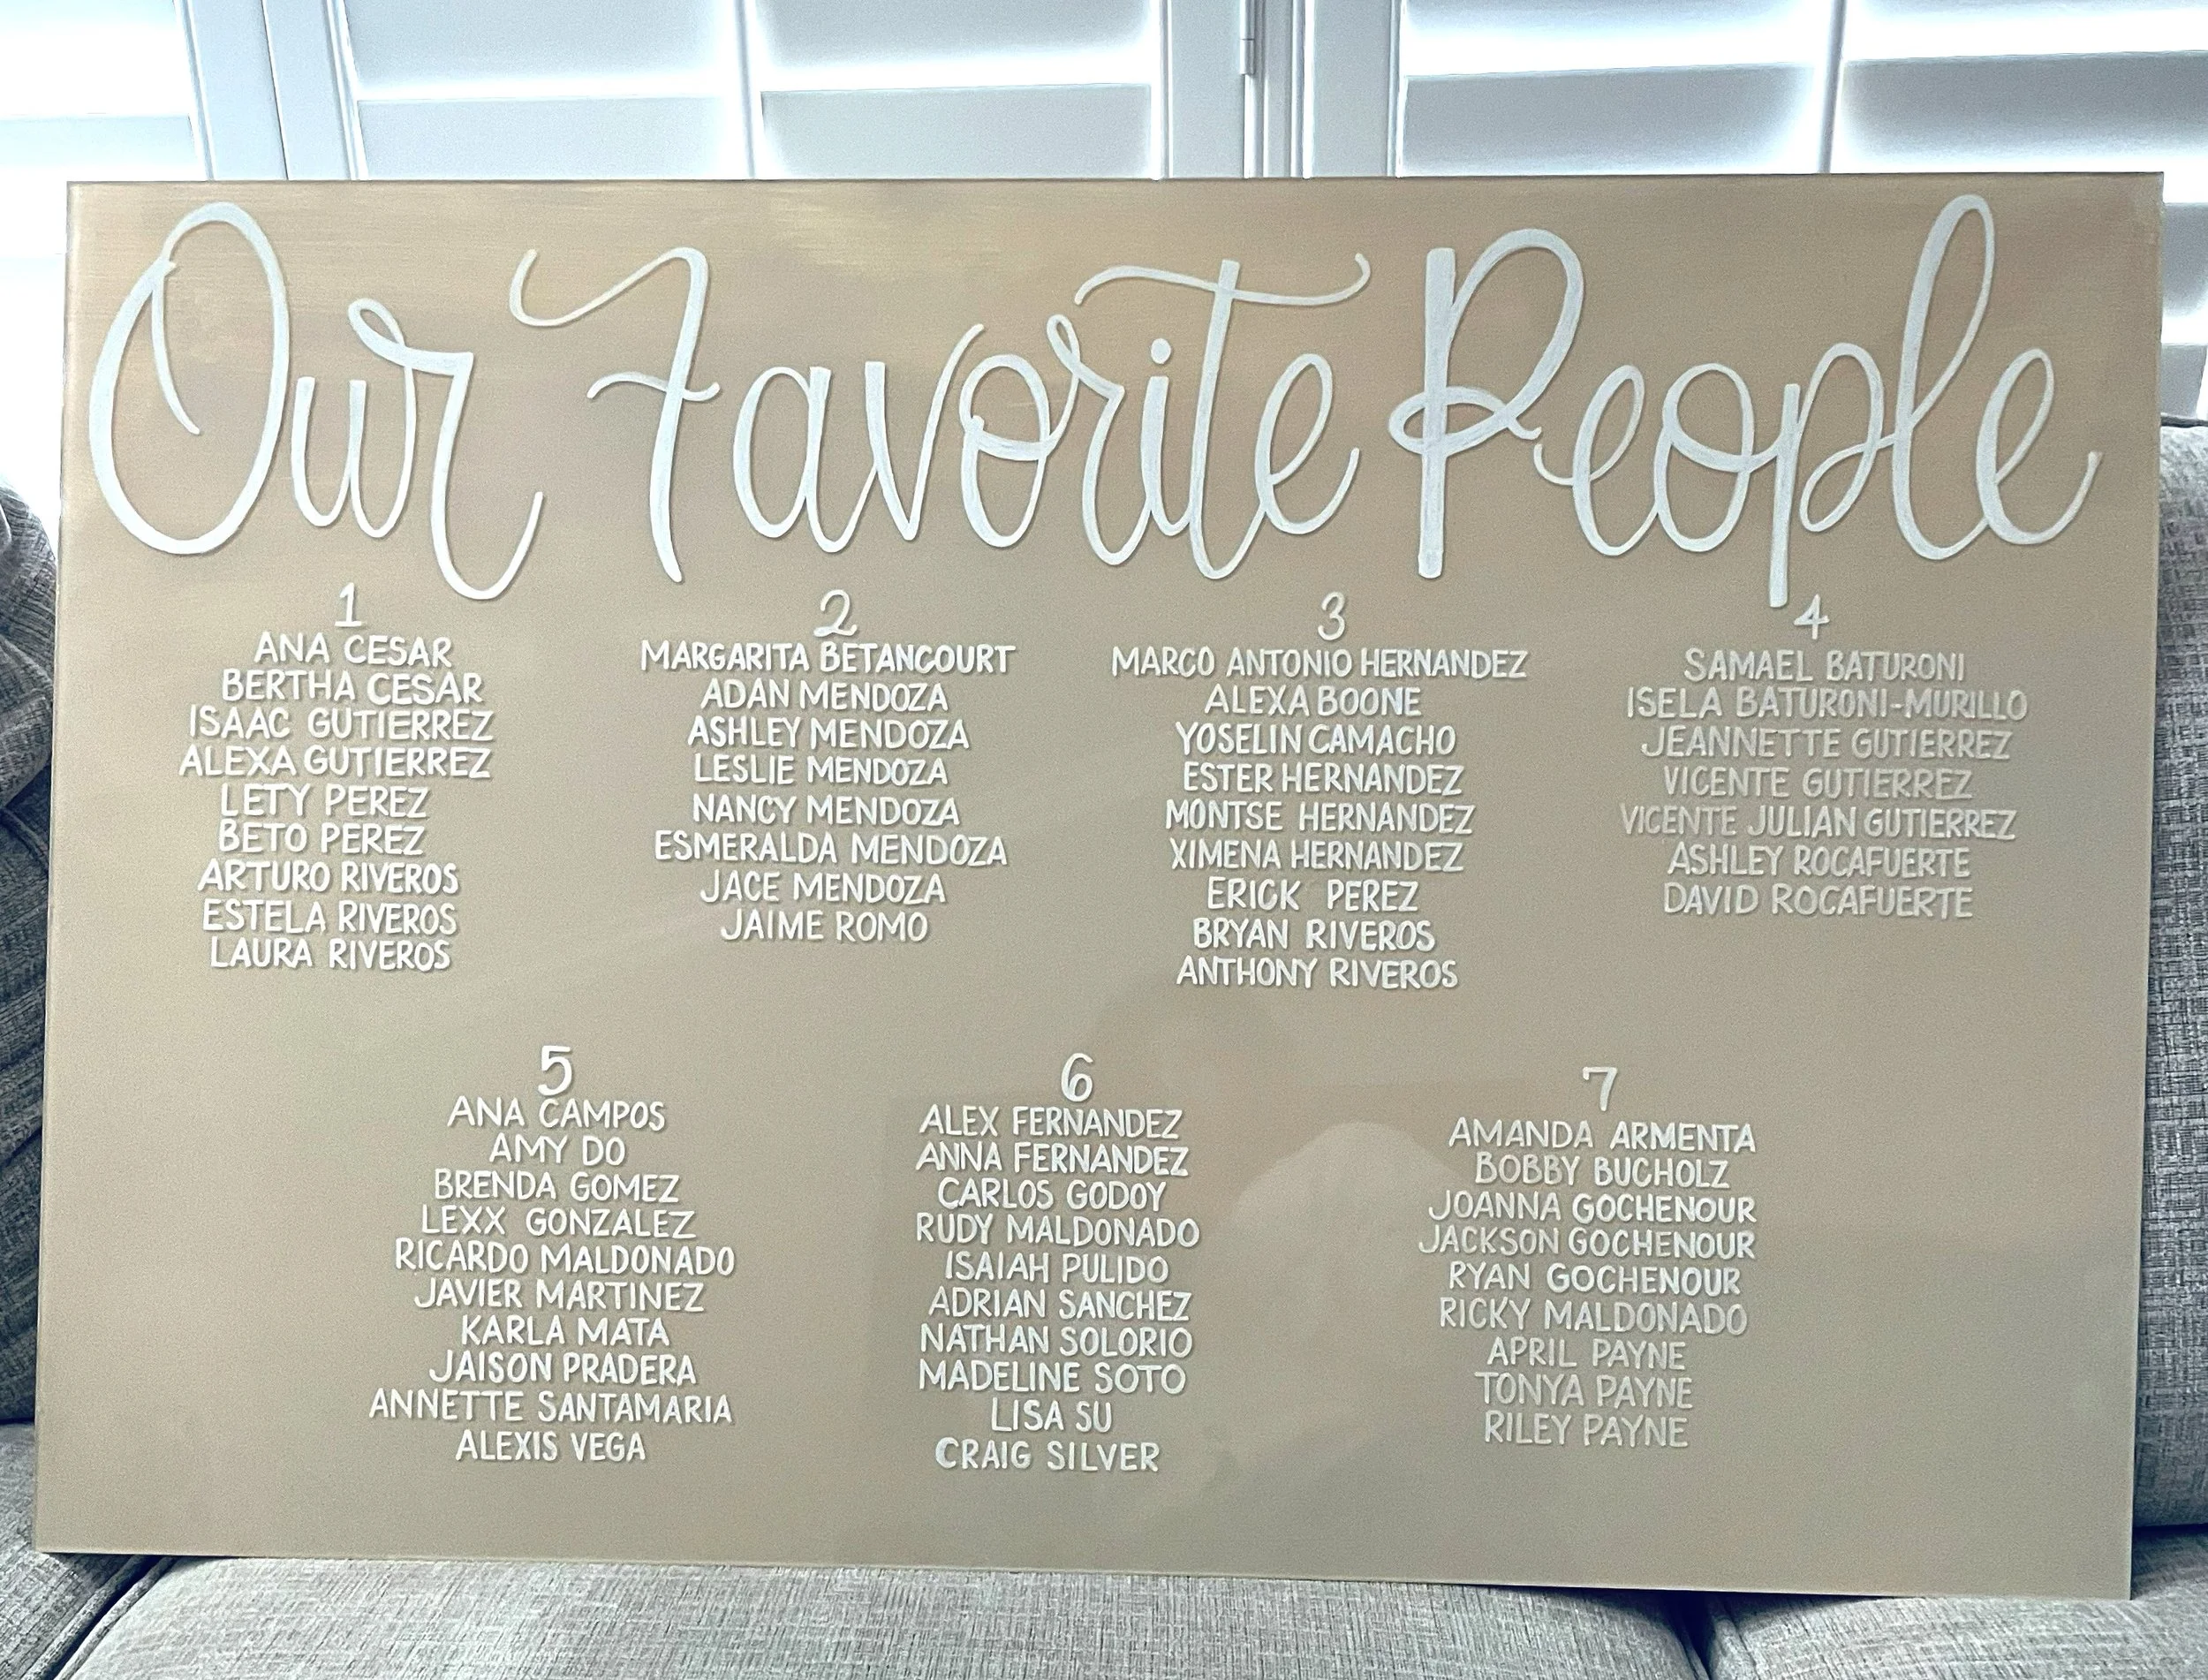 Our Favorite People
1
ANA CESAR
BERTHA CESAR
ISAAC GUTIERREZ
ALEXA GUTIERREZ
LETY PEREZ
BETO PEREZ
ARTURO RIVEROS
ESTELA RIVEROS
LAURA RIVEROS
2
MARGARITA BETANCOURT
ADAN MENDOZA
ASHLEY MENDOZA
LESLIE MENDOZA
NANCY MENDOZA
ESMERALDA MENDOZA
JACE MENDOZA
JAIME ROMO
3
MARCO ANTONIO HERNANDEZ
ALEXA BOONE
YOSELIN CAMACHO
ESTER HERNANDEZ
MONTSE HERNANDEZ
XIMENA HERNANDEZ
ERICK PEREZ
BRYAN RIVEROS
ANTHONY RIVEROS
4
SAMAEL BATURONI
ISELA BATURONI-MURILLO
JEANNETTE GUTIERREZ
VICENTE GUTIERREZ
VICENTE JULIAN GUTIERREZ
ASHLEY ROCAFUERTE
DAVID ROCAFUERTE
5
ANA CAMPOS
AMY DO
BRENDA GOMEZ
LEXX GONZALEZ
RICARDO MALDONADO
JAVIER MARTINEZ
KARLA MATA
JAISON PRADERA
ANNETTE SANTAMARIA
ALEXIS VEGA
6
ALEX FERNANDEZ
ANNA FERNANDEZ
CARLOS GODOY
RUDY MALDONADO
ISAIAH PULIDO
ADRIAN SANCHEZ
NATHAN SOLORIO
MADELINE SOTO
LISA SU
CRAIG SILVER
7
AMANDA ARMENTA
BOBBY BUCHOLZ
JOANNA GOCHENOUR
JACKSON GOCHENOUR
RYAN GOCHENOUR
RICKY MALDONADO
APRIL PAYNE
TONYA PAYNE
RILEY PAYNE